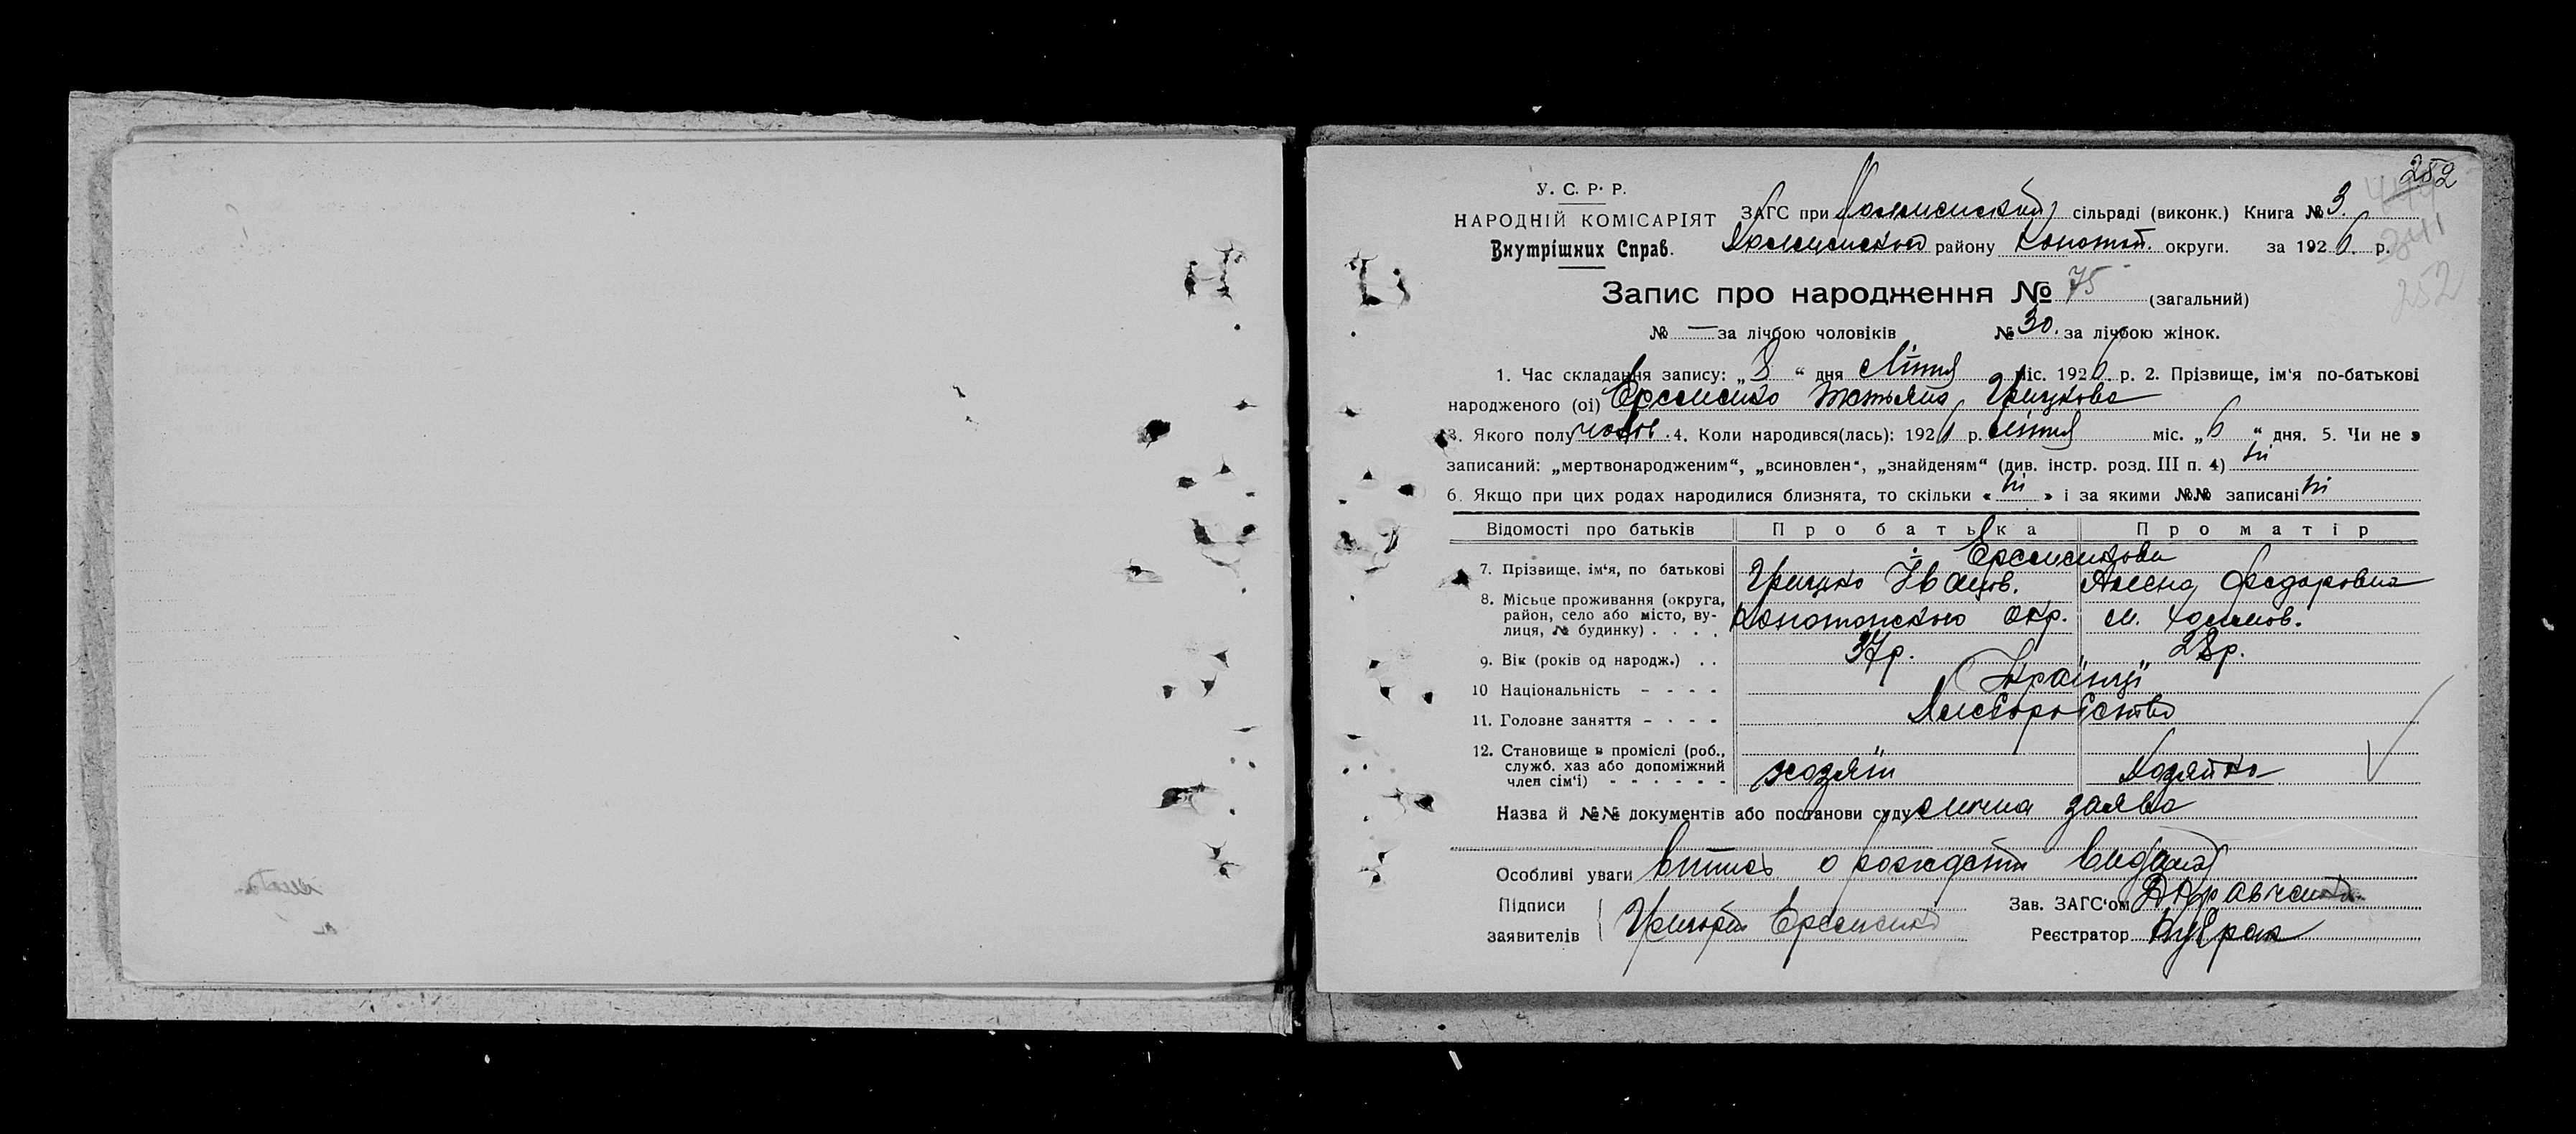 252
У. С. Р. Р.
НАРОДНІЙ КОМІСАРІЯТ
Внутрішних Справ.
ЗАГС при сільраді (виконк.) Книга № 3.
району Конотоп. округи. за 1926 р.
341
252
Запис про народження № 75 (загальний)
№ — за лічбою чоловіків № 30. за лічбою жінок.
1. Час складання запису: „8“ дня Літня міс. 1926. р. 2. Прізвище, ім‘я по-батькові
народженого (ої) Єременко Татьяна Грицкова
3. Якого полу .4. Коли народився(лась): 1926 р. Літня міс. „6“ дня. 5. Чи не з
записаний: „мертвонародженим“, „всиновлен“, „знайденям“ (див. інстр. розд. III п. 4) ні
6. Якщо при цих родах народилися близнята, то скільки « ні » і за якими №№ записані ні
Відомості про батьків Про батька Про матір
7. Прізвище, ім‘я, по батькові Єременкови
Грицко Іванов. Алена Федоровна
8. Місьце проживання (округа, район, село або місто, вулиця, № будинку) . . . . Конотопскою окр. м.
9. Вік (років од народж.) . . 37р. 28р.
10 Національність - - - - Українці
11. Головне заняття - - - - Хлєборобство
12. Становище в проміслі (роб., служб. хаз або допоміжний член сім‘і) - - - - - - хозяїн Хозяйка
Назва й №№ документів або постанови суду лична заява
Особливі уваги витись о рождєнии видана
Підписи
заявителів Григорій Єременко
Зав. ЗАГС‘ом Кравченко
Реєстратор